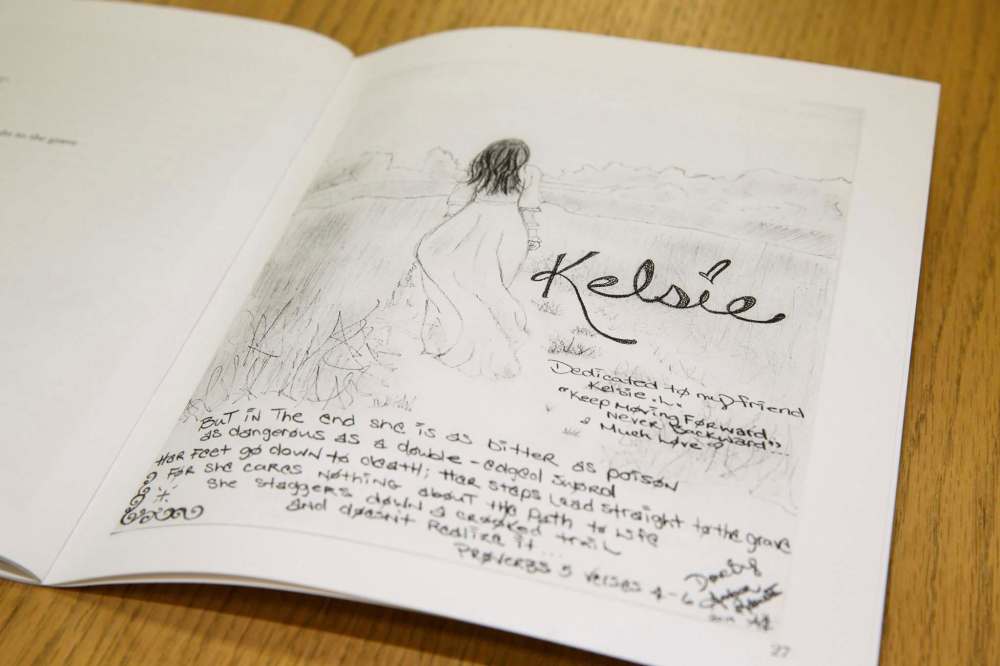 to the grave
Kelsie
Dedicated to my friend
Kelsie...
"Keep Moving Forward..
Never Backward"...
Much Love
But in The end she is as bitter as poison
as dangerous as a double-edged sword
Her Feet go down to death; Her steps Lead straight to the grave
For she cares Nothing about the path to Life
She staggers down a crooked trail
and doesn't Realize it...
Proverbs 5 verses 4-6
27